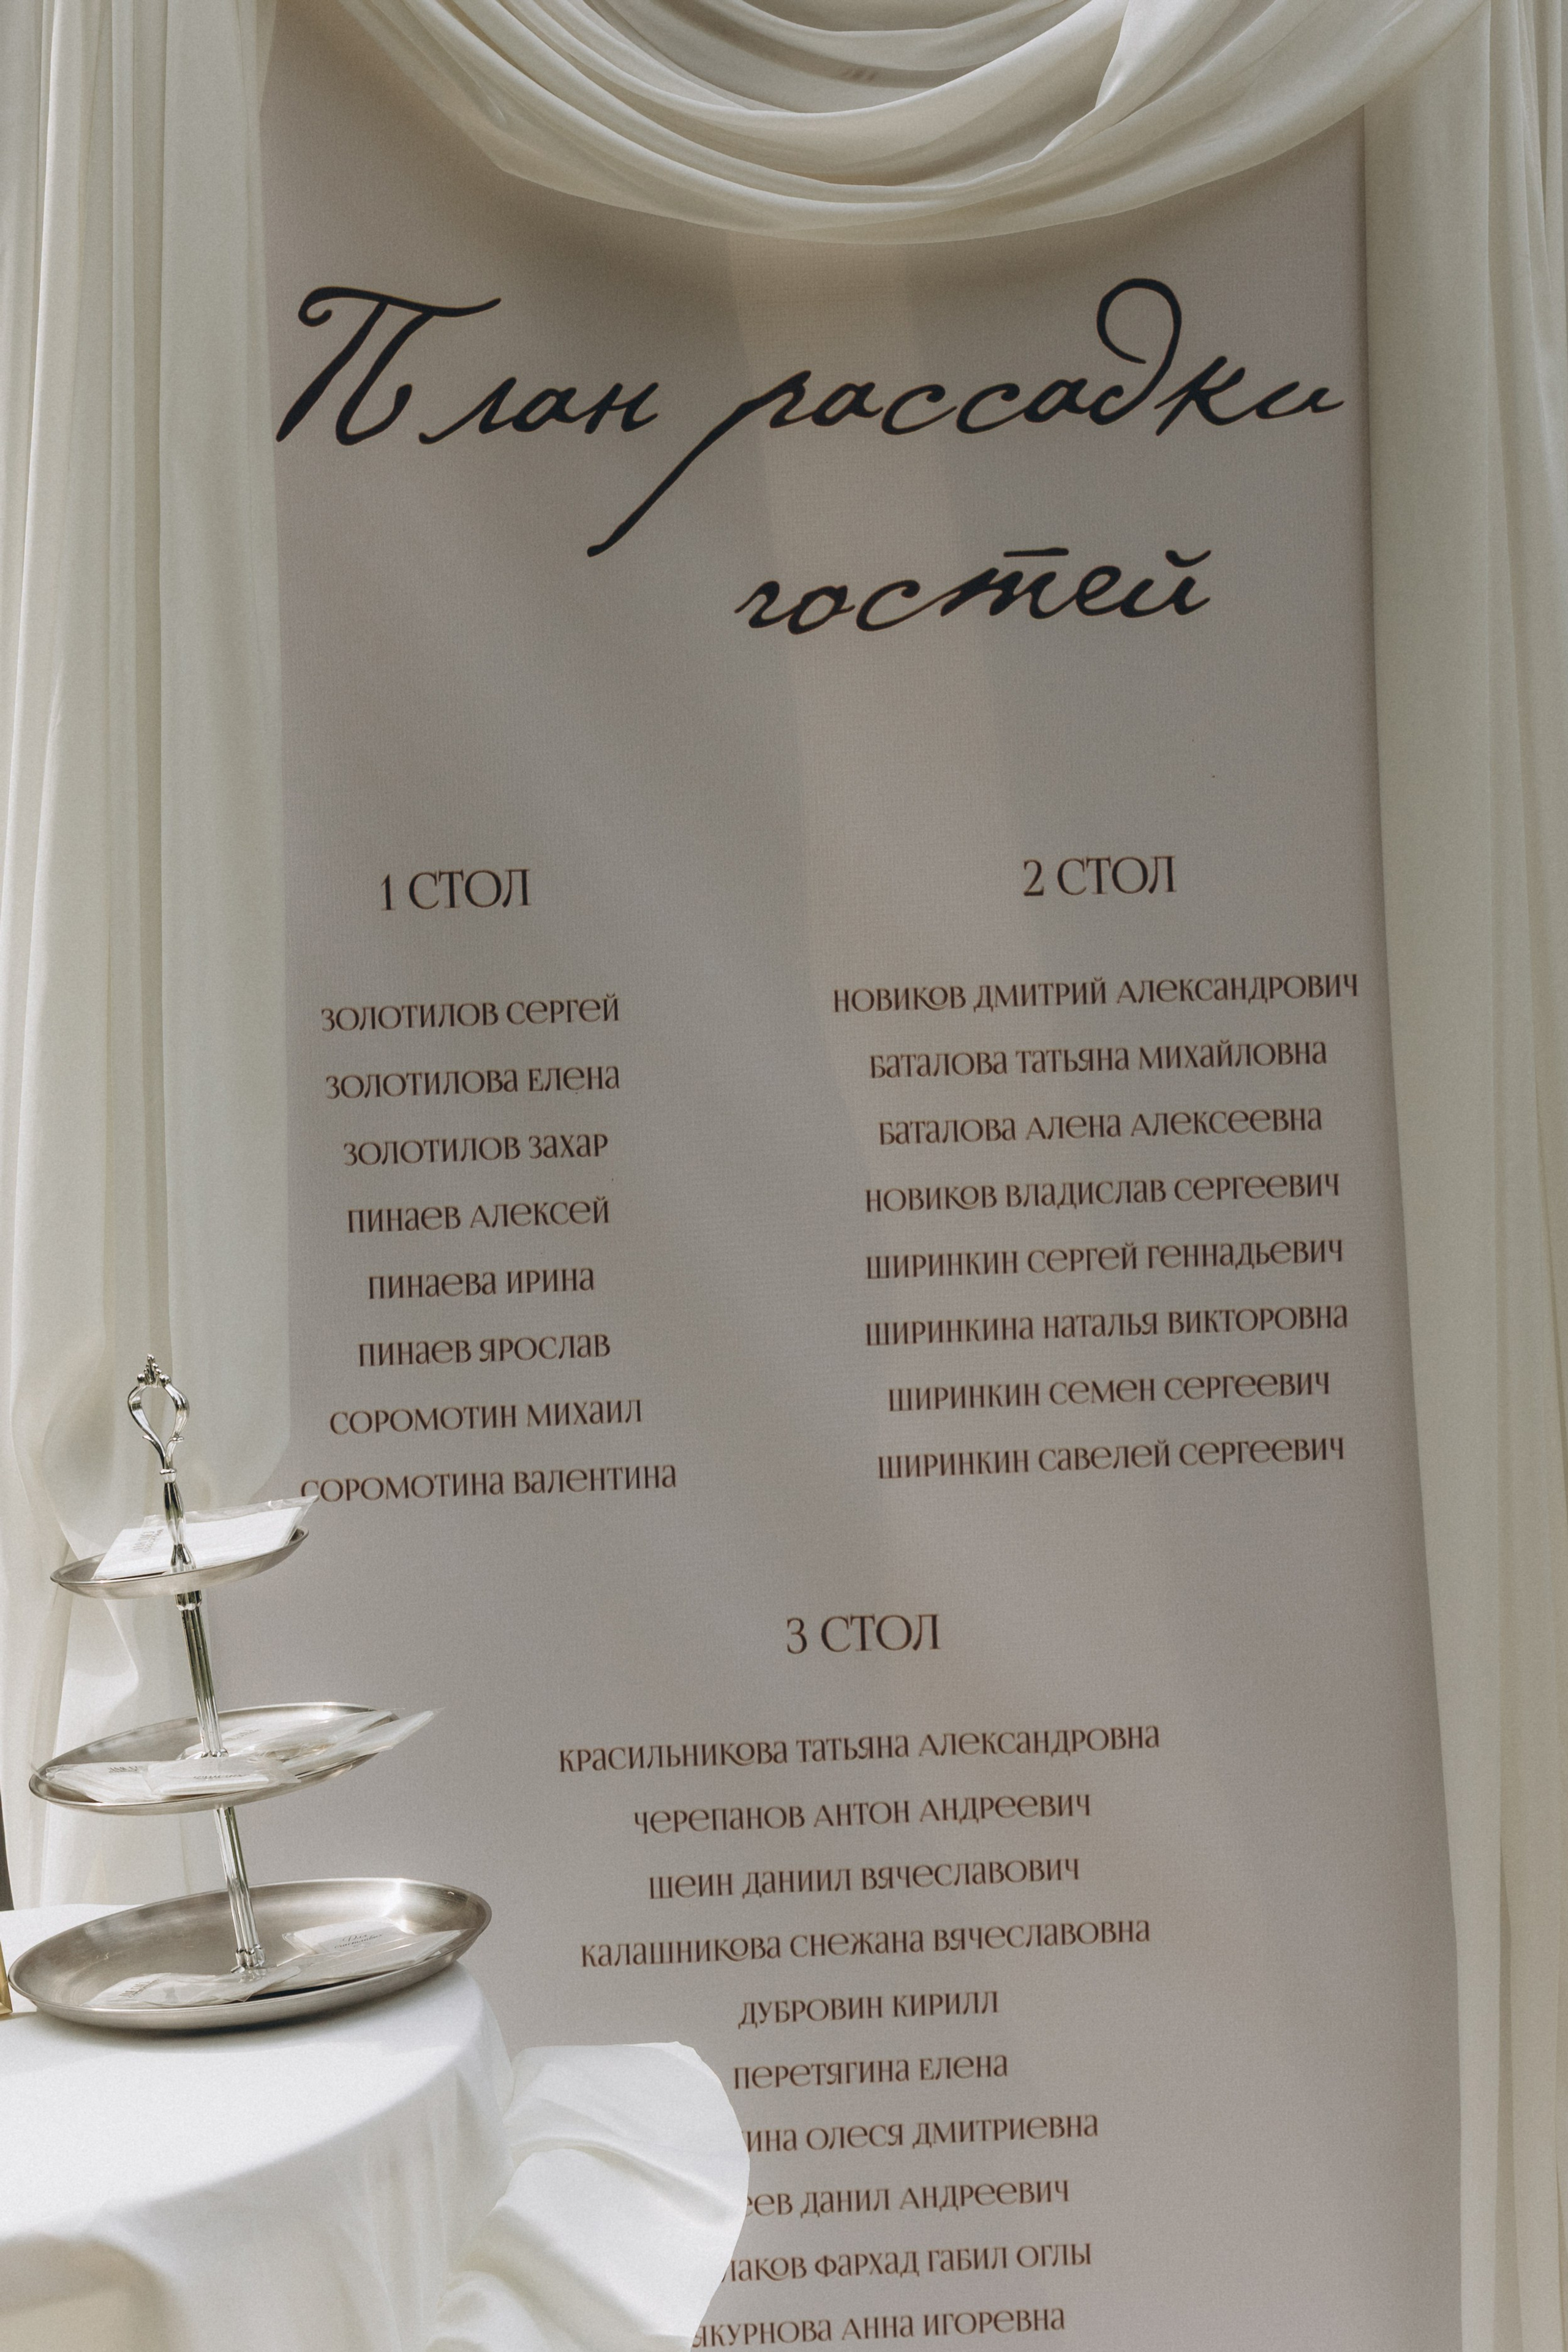 План рассадки
гостей
1 СТОЛ
ЗОЛОТИЛОВ СЕРГЕЙ
ЗОЛОТИЛОВА ЕЛЕНА
ЗОЛОТИЛОВ ЗАХАР
ПИНАЕВ АЛЕКСЕЙ
ПИНАЕВА ИРИНА
ПИНАЕВ ЯРОСЛАВ
СОРОМОТИН МИХАИЛ
СОРОМОТИНА ВАЛЕНТИНА
2 СТОЛ
НОВИКОВ ДМИТРИЙ АЛЕКСАНДРОВИЧ
БАТАЛОВА ТАТЬЯНА МИХАЙЛОВНА
БАТАЛОВА АЛЕНА АЛЕКСЕЕВНА
НОВИКОВ ВЛАДИСЛАВ СЕРГЕЕВИЧ
ШИРИНКИН СЕРГЕЙ ГЕННАДЬЕВИЧ
ШИРИНКИНА НАТАЛЬЯ ВИКТОРОВНА
ШИРИНКИН СЕМЕН СЕРГЕЕВИЧ
ШИРИНКИН САВЕЛЕЙ СЕРГЕЕВИЧ
3 СТОЛ
КРАСИЛЬНИКОВА ТАТЬЯНА АЛЕКСАНДРОВНА
ЧЕРЕПАНОВ АНТОН АНДРЕЕВИЧ
ШЕИН ДАНИИЛ ВЯЧЕСЛАВОВИЧ
КАЛАШНИКОВА СНЕЖАНА ВЯЧЕСЛАВОВНА
ДУБРОВИН КИРИЛЛ
ПЕРЕТЯГИНА ЕЛЕНА
ОЛЕСЯ ДМИТРИЕВНА
ДАНИЛ АНДРЕЕВИЧ
ФАРХАД ГАБИЛ ОГЛЫ
АННА ИГОРЕВНА